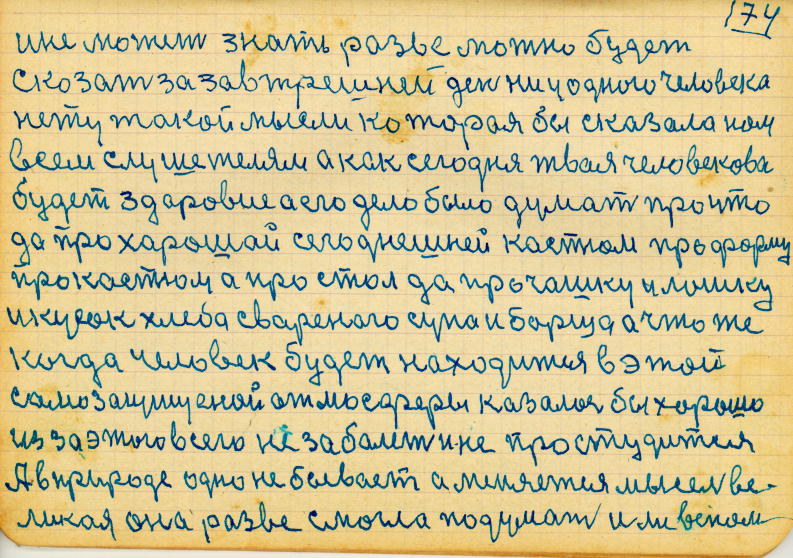 174
и не может знать разве можно будет
сказат за завтрешней ден ниуодного человека
нету такой мысли которая бы сказала ном
всем слушетелям а как сегодня твая человекова
будет здаровие а его дело было думат прочто
да про харошай сегоднешней кастюм про форму
прокастюм а про стол да прочашку и лошку
и кусок хлеба свареного супа и борща а что же
когда человек будет находится в этой
самозащищеной атмосферы казалося бы хорошо
из за этого всего не забалет и не простудится
А в природе одно не бывает а меняется мысел ве-
ликая она разве смогла подумат или вспом-